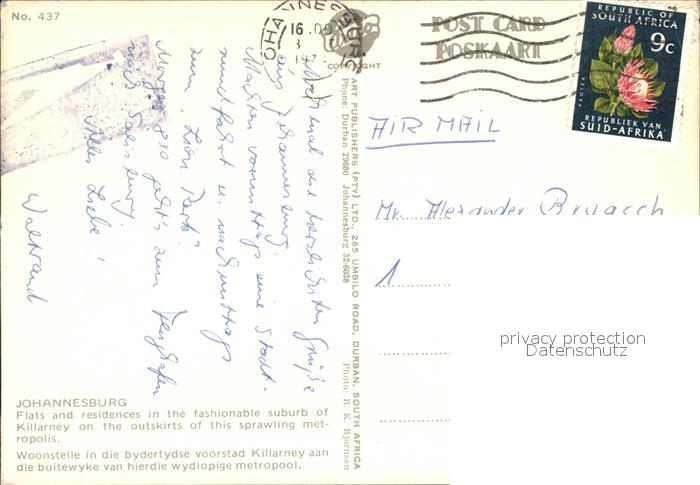 No. 437
16.00
COPYRIGHT
POST CARD
POSKAART
REPUBLIC OF
SOUTH AFRICA
9c
PROTEA
REPUBLIEK VAN
SUID-AFRIKA
AIR MAIL
Mr. Alexander
1
privacy protection
Datenschutz
ART PUBLISHERS (PTY) LTD., 265 UMBILO ROAD, DURBAN, SOUTH AFRICA
Phone: Durban 29680 Johannesburg 32-6038
Photo: B. K. Bjornsen
Noch mal die herzlichsten Grüße
aus Johannesburg.
Machen vormittags eine Stadt-
rundfahrt u. nachmittags
zum Lion Park.
Morgen geht's zum Flughafen
nach Salisbury.
Alles Liebe!
Waltraud
JOHANNESBURG
Flats and residences in the fashionable suburb of
Killarney on the outskirts of this sprawling met-
ropolis.
Woonstelle in die bydertydse voorstad Killarney aan
die buitewyke van hierdie wydlopige metropool.